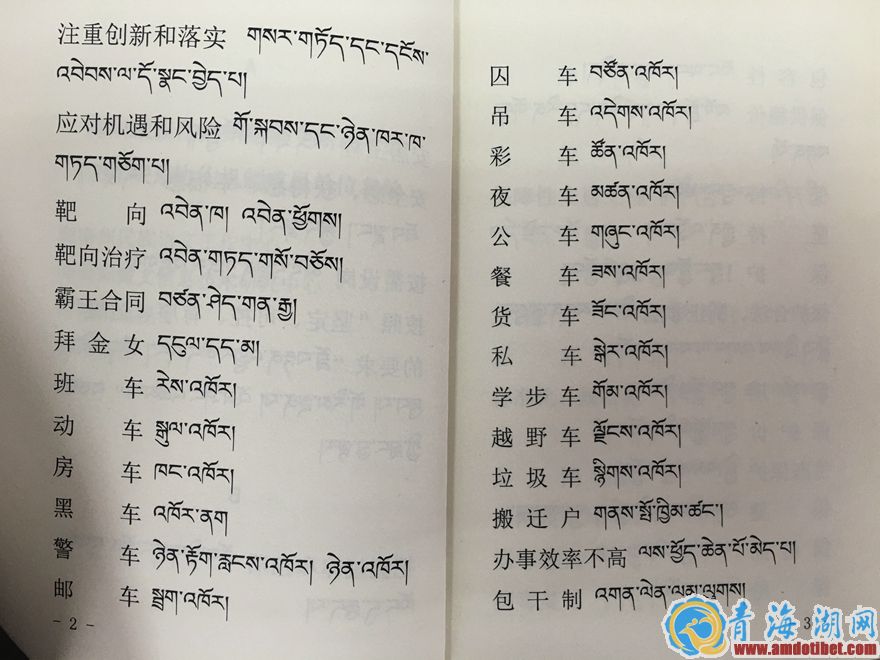 注重创新和落实 གསར་གཏོད་དང་དངོས་
འབེབས་ལ་དོ་སྣང་བྱེད་པ།
应对机遇和风险 གོ་སྐབས་དང་ཉེན་ཁར་ཁ་
གཏད་གཅོག་པ།
靶向 འབེན་ཁ། འབེན་ཕྱོགས།
靶向治疗 འབེན་གཏད་གསོ་བཅོས།
霸王合同 བཙན་ཤེད་གན་རྒྱ།
拜金女 དངུལ་དད་མ།
班车 རེས་འཁོར།
动车 སྒུལ་འཁོར།
房车 ཁང་འཁོར།
黑车 འཁོར་ནག
警车 ཉེན་རྟོག་རླངས་འཁོར། ཉེན་འཁོར།
邮车 སྦྲག་འཁོར།
- 2 -
囚车 བཙོན་འཁོར།
吊车 འདེགས་འཁོར།
彩车 ཚོན་འཁོར།
夜车 མཚན་འཁོར།
公车 གཞུང་འཁོར།
餐车 ཟས་འཁོར།
货车 ཟོང་འཁོར།
私车 སྒེར་འཁོར།
学步车 གོམ་འཁོར།
越野车 ལྗོངས་འཁོར།
垃圾车 སྙིགས་འཁོར།
搬迁户 གནས་སྤོ་ཁྱིམ་ཚང་།
办事效率不高 ལས་ཕྱོད་ཆེན་པོ་མེད་པ།
包干制 འགན་ལེན་ལམ་ལུགས།
3
青海湖网
www.amdotibet.com